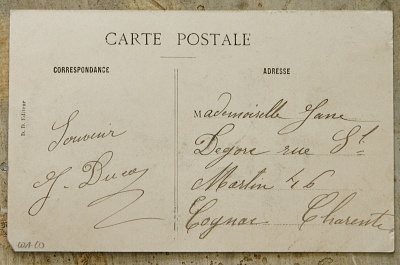 CARTE POSTALE
CORRESPONDANCE
ADRESSE
D. D. Editeur
Souvenir
J. Ducos
Mademoiselle Jane
Degore rue St
Martin 46
Cognac Charente